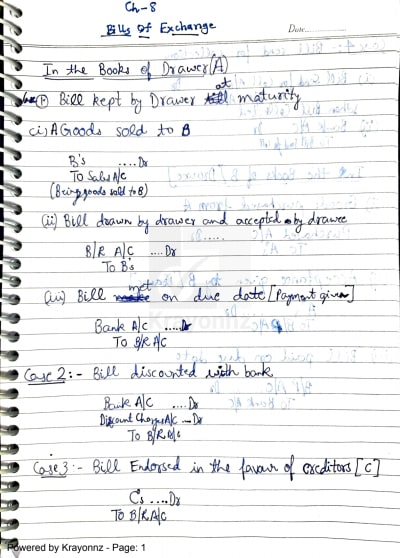 Ch-8
Bills Of Exchange
Date
In the Books of Drawer (A)
① Bill kept by Drawer at maturity
(i) A Goods sold to B
B's ....Dr
To Sales A/c
(Being goods sold to B)
(ii) Bill drawn by drawer and accepted by drawee
B/R A/C ....Dr
To B's
(iii) Bill met on due date [Payment given]
Bank A/C ....Dr
To B/R A/C
Case 2:- Bill discounted with bank
Bank A/C ....Dr
Discount Charges A/c -Dr
To B/R
Case 3:- Bill Endorsed in the favour of creditors [C]
C's ....Dr
To B/R A/C
Krayonnz
Powered by Krayonnz - Page: 1